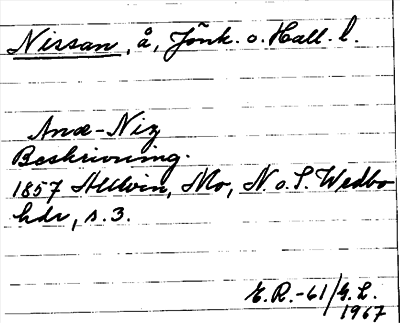 Nissan, å, Jönk. o. Hall. l.
Anæ-Niz
Beskrivning.
1857 Allvin, Mo, N. o. S. Wedbo
hdr, s. 3.
E.R.-61/G.L.
1967